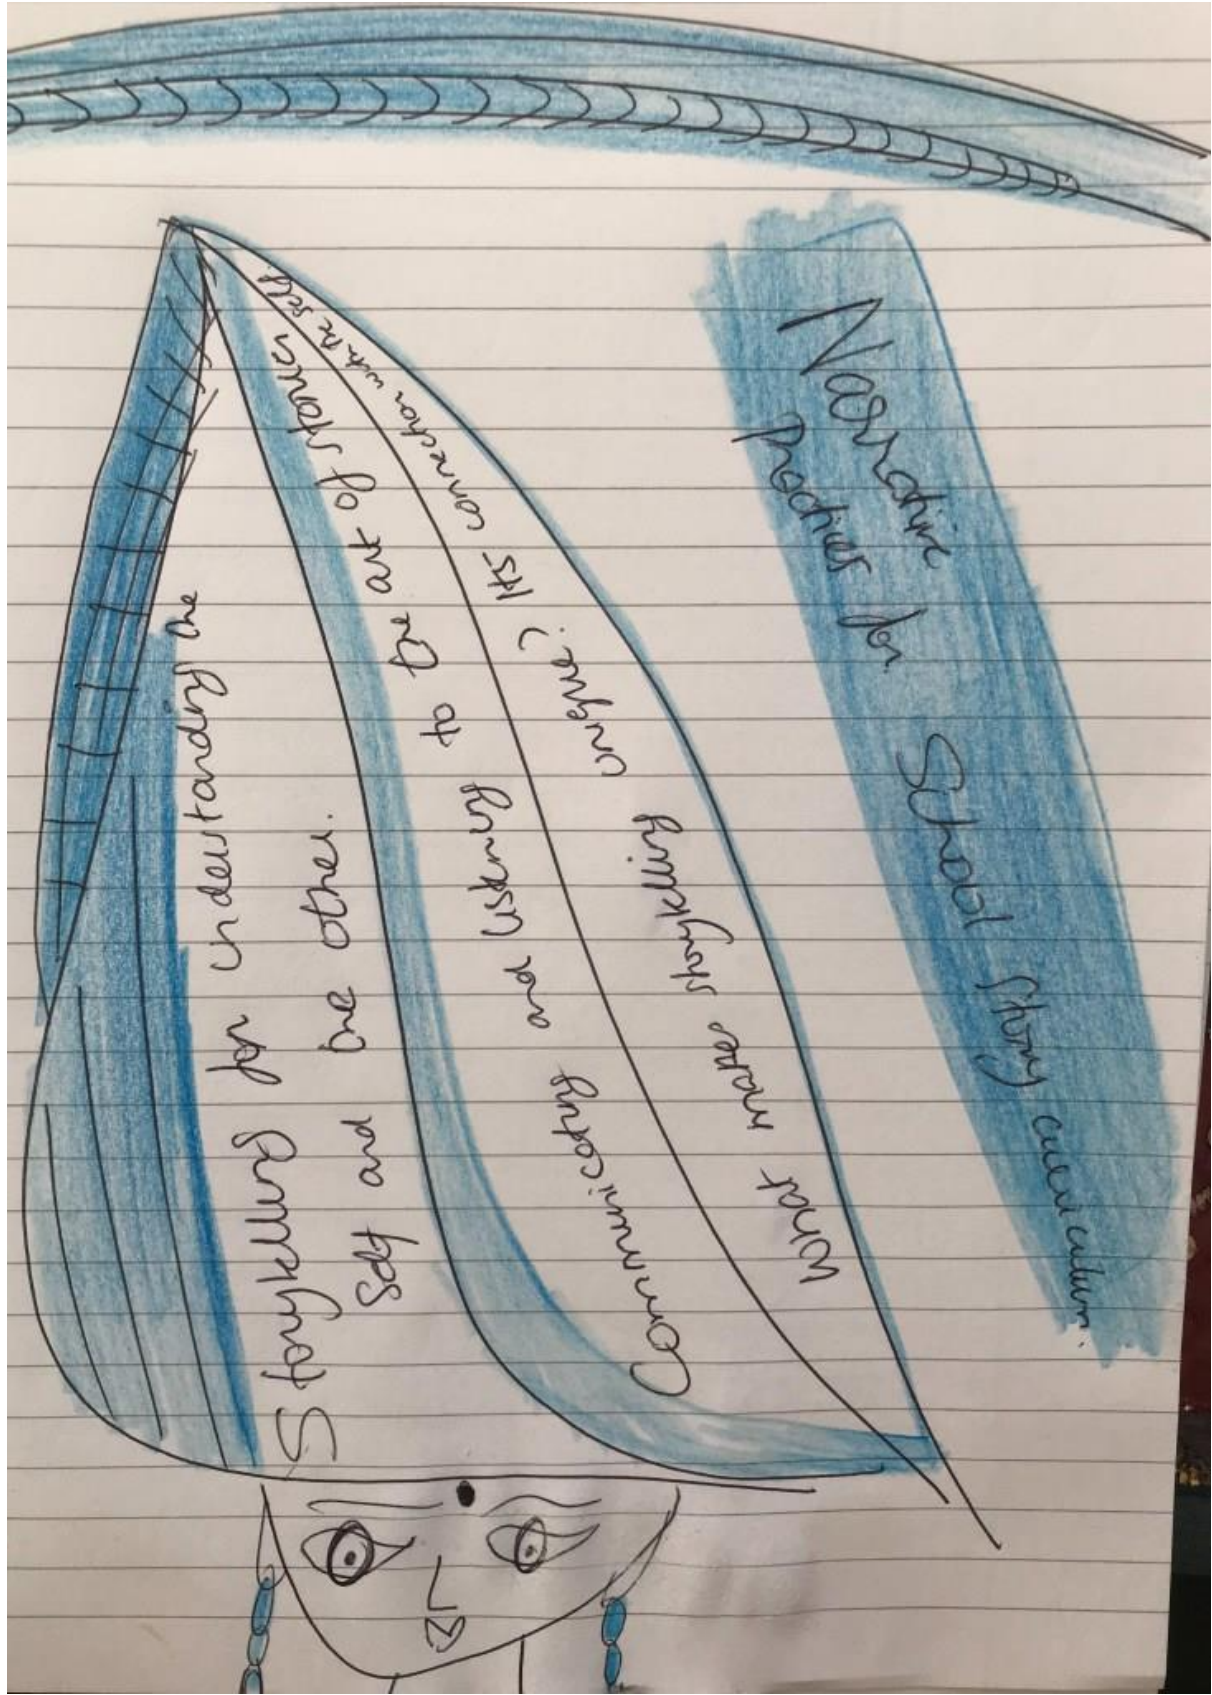 Narrative
Practies for
School story curriculum.
What makes storytelling unique? Its connection with the self.
Communicating and listening to the art of stories
Storytelling for understanding the
self and the other.